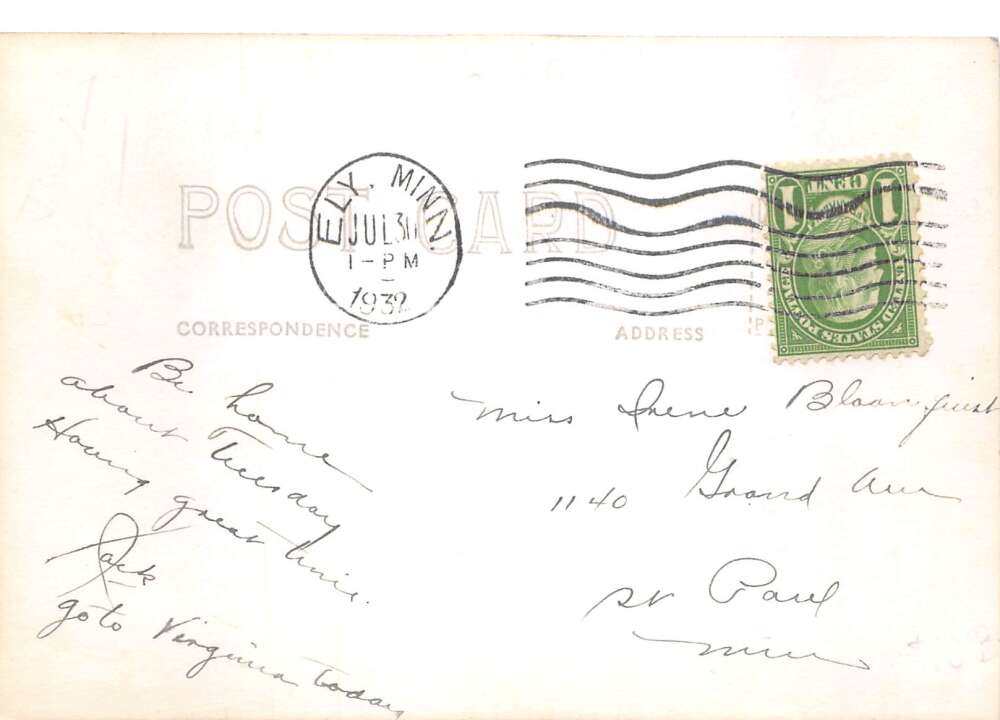 POST CARD
ELY, MINN.
JUL 30
1-PM
1932
1 CENT 1
UNITED STATES POSTAGE
CORRESPONDENCE
ADDRESS
Be home
about Tuesday
Having great time.
Jack
go to Virginia today
Miss Irene Bloomquist
1140 Grand Ave
St Paul
Minn